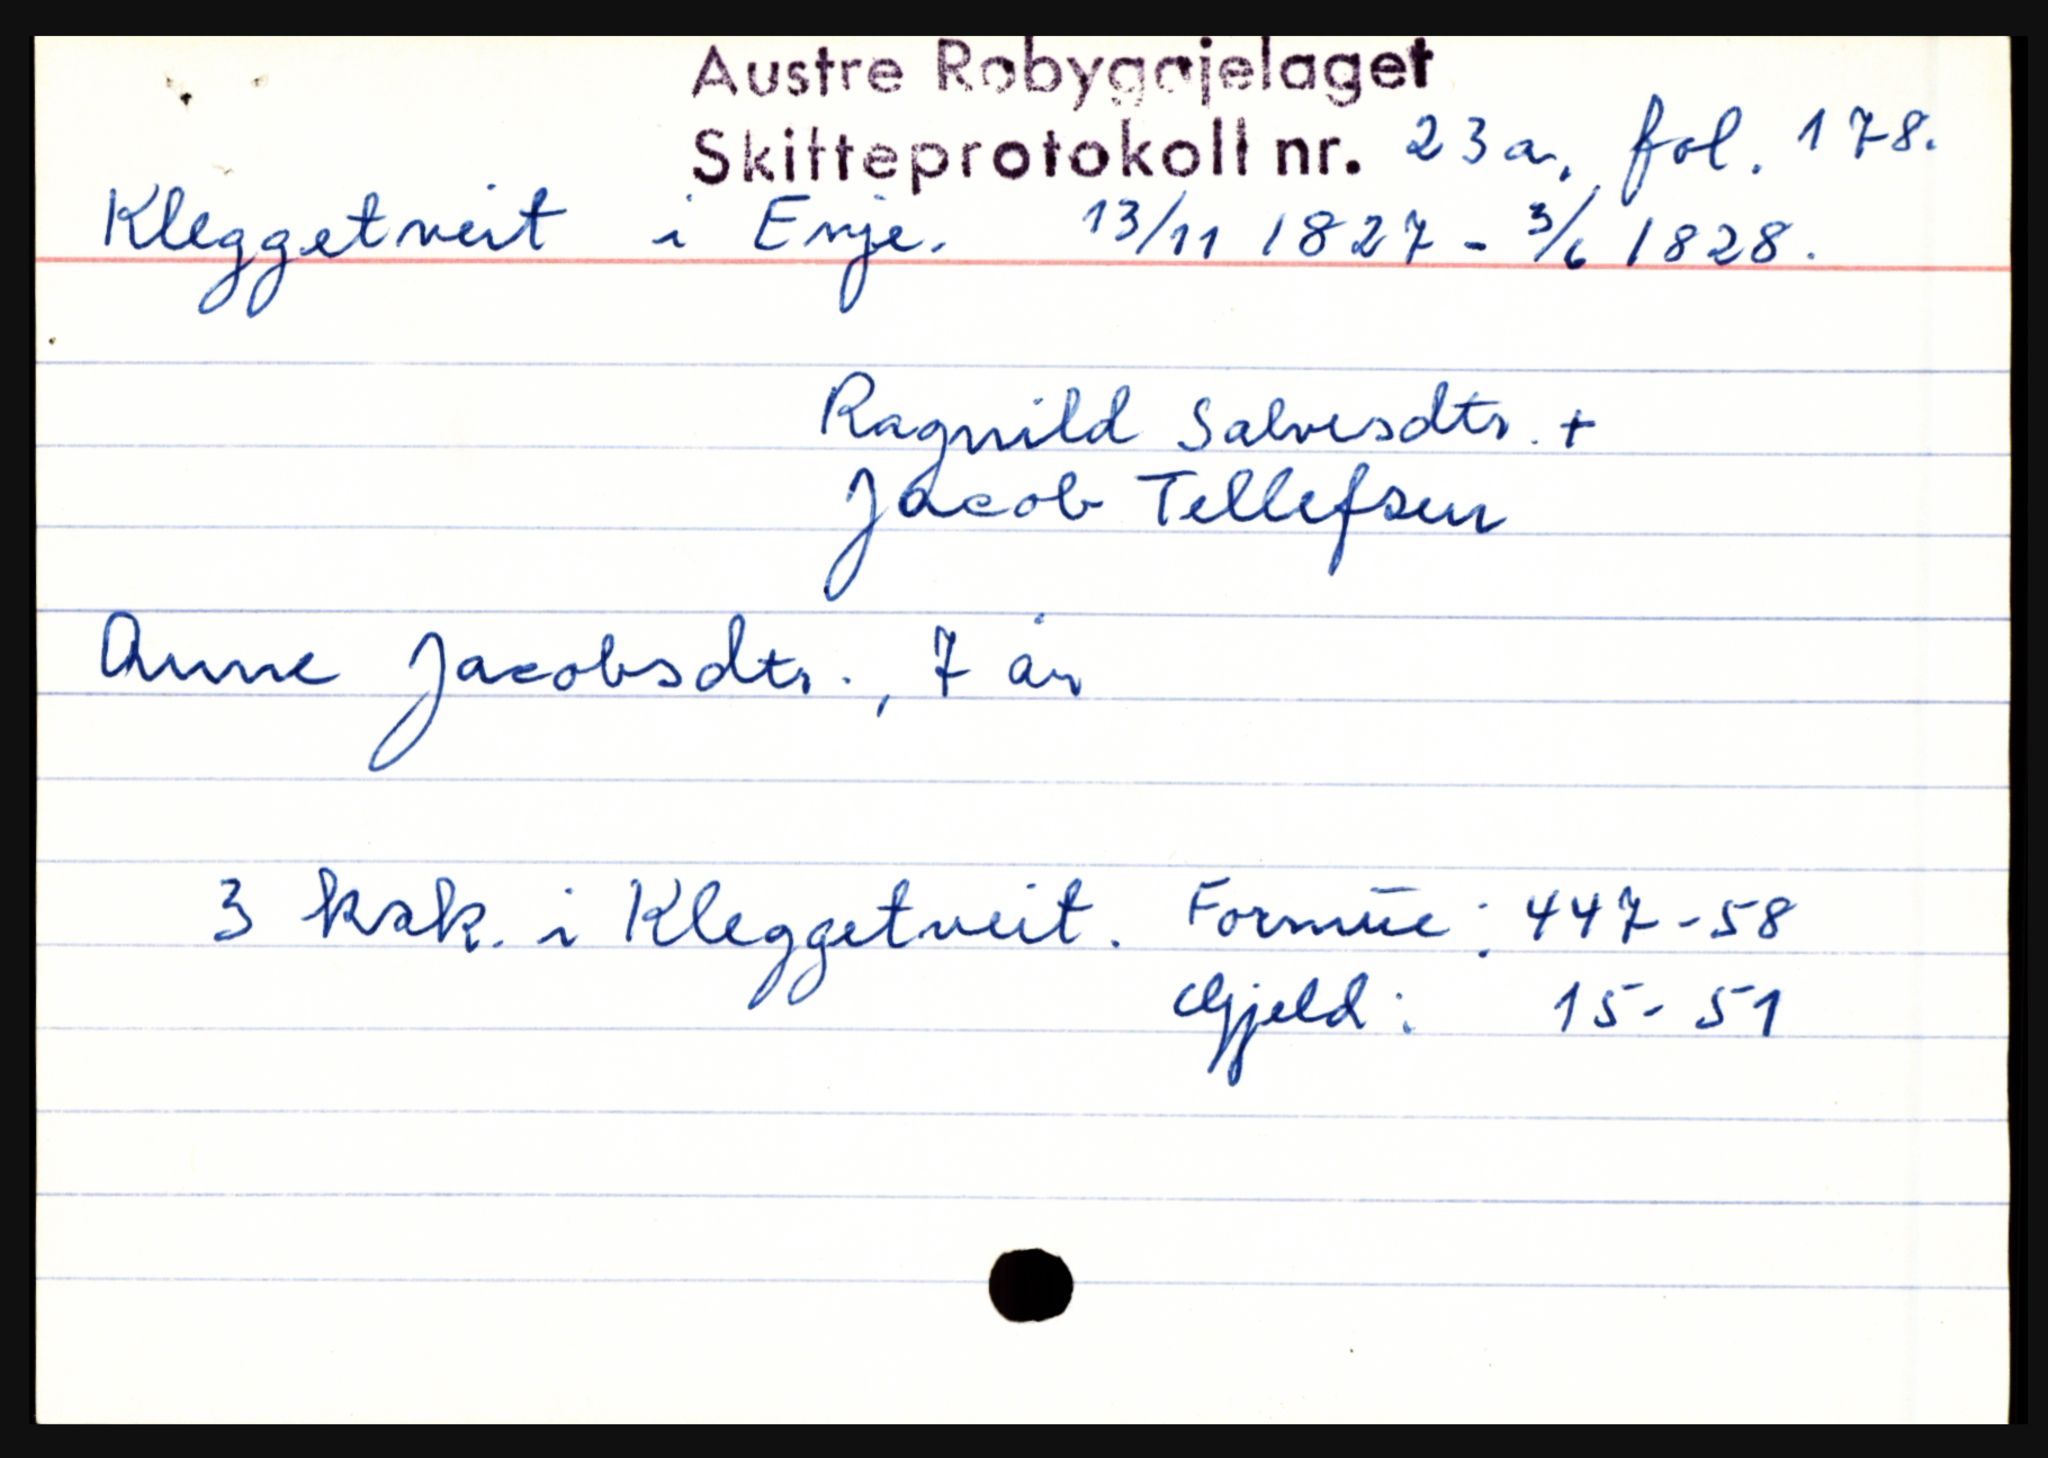 Austre Robyggjelaget
Skifteprotokoll nr. 23a, fol. 178.
Kleggetveit i Evje. 13/11 1827 - 3/6 1828.
Ragnild Salvesdtr. +
Jacob Tellefsen
Anne Jacobsdtr., 7 år
3 ksk. i Kleggetveit. Formue: 447-58
Gjeld: 15-51